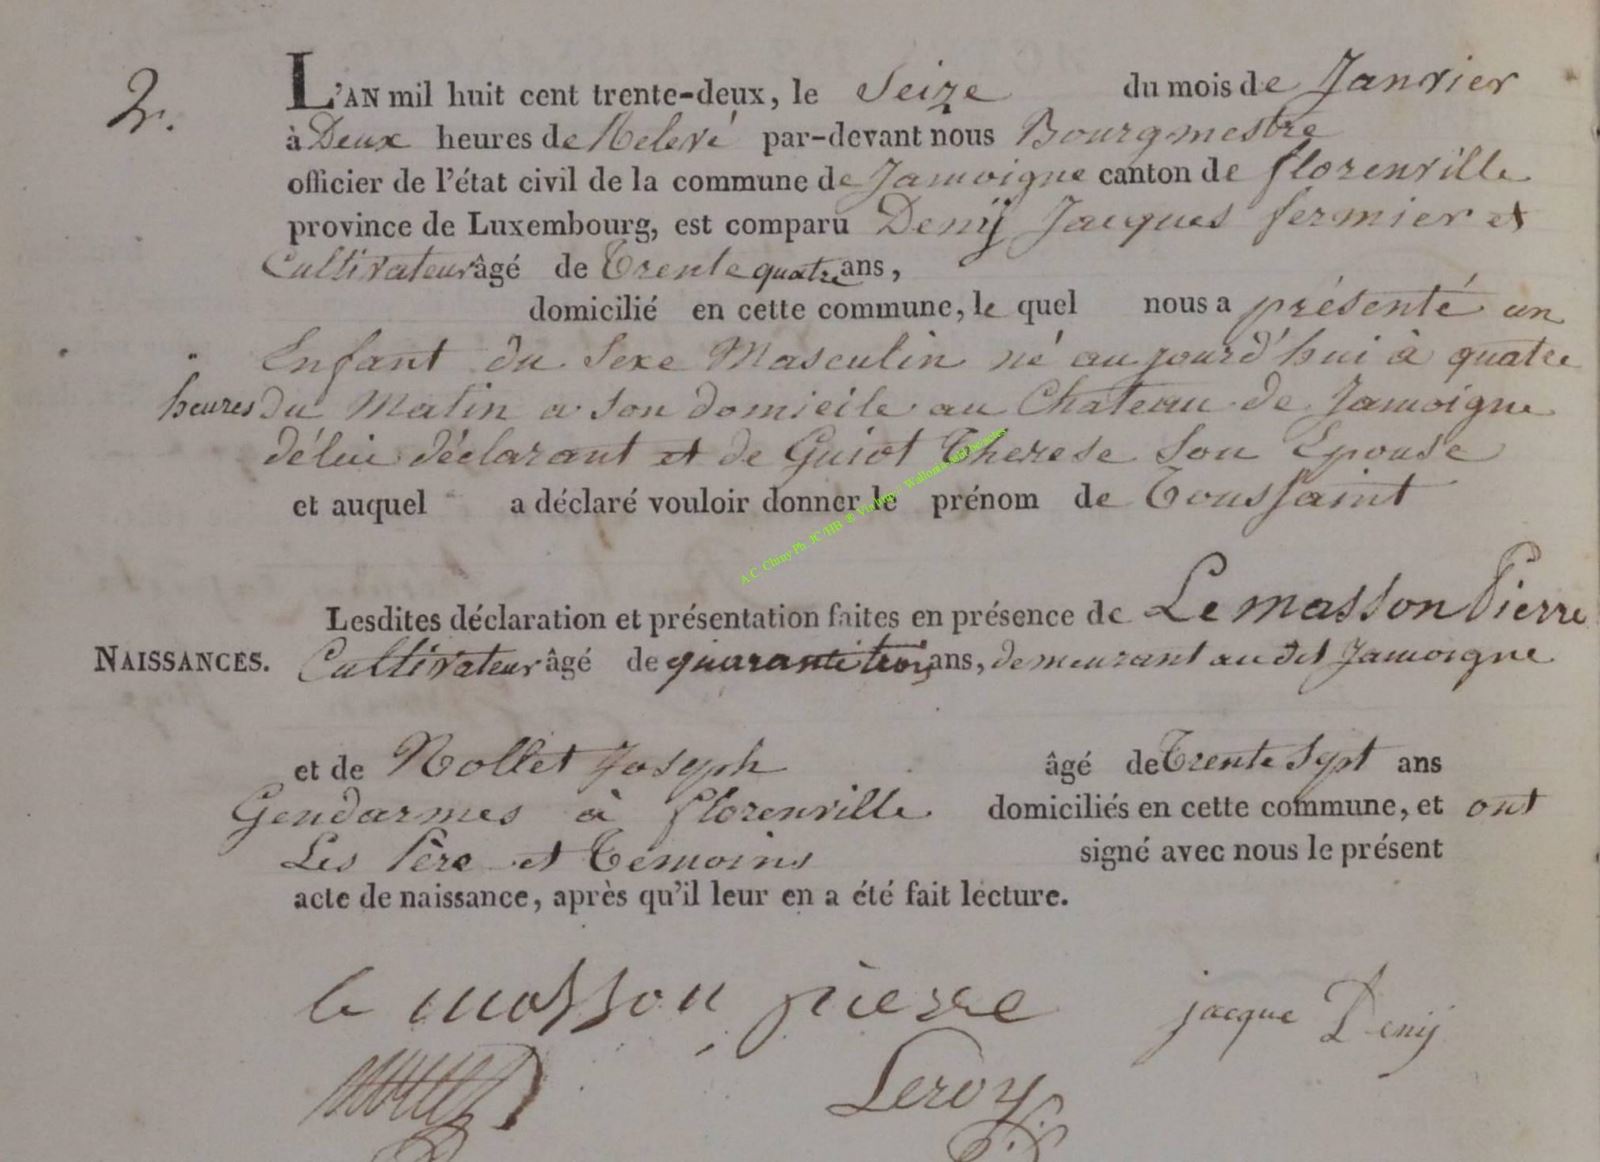 2.
L'AN mil huit cent trente-deux, le Seize du mois de Janvier
à Deux heures de Relevé par-devant nous Bourgmestre
officier de l'état civil de la commune de Jamoigne canton de florenville
province de Luxembourg, est comparu Denij Jacques fermier et
Cultivateur âgé de Trente quatre ans,
domicilié en cette commune, le quel nous a présenté un
Enfant du Sexe Masculin né aujourd'hui à quatre
heures du Matin a son domicile au Chateau de Jamoigne
délui déclarant et de Guiot Therese Son Epouse
et auquel a déclaré vouloir donner le prénom de Toussaint
A.C. Chiny Ph. JC/HB ®
Lesdites déclaration et présentation faites en présence de Le masson Pierre
NAISSANCES. Cultivateur âgé de quarante trois ans, demeurant au dit Jamoigne
et de Nollet Joseph âgé de Trente Sept ans
Gendarmes à florenville domiciliés en cette commune, et ont
Les Père et Temoins signé avec nous le présent
acte de naissance, après qu'il leur en a été fait lecture.
le masson pièrre jacque Denij
Leroy